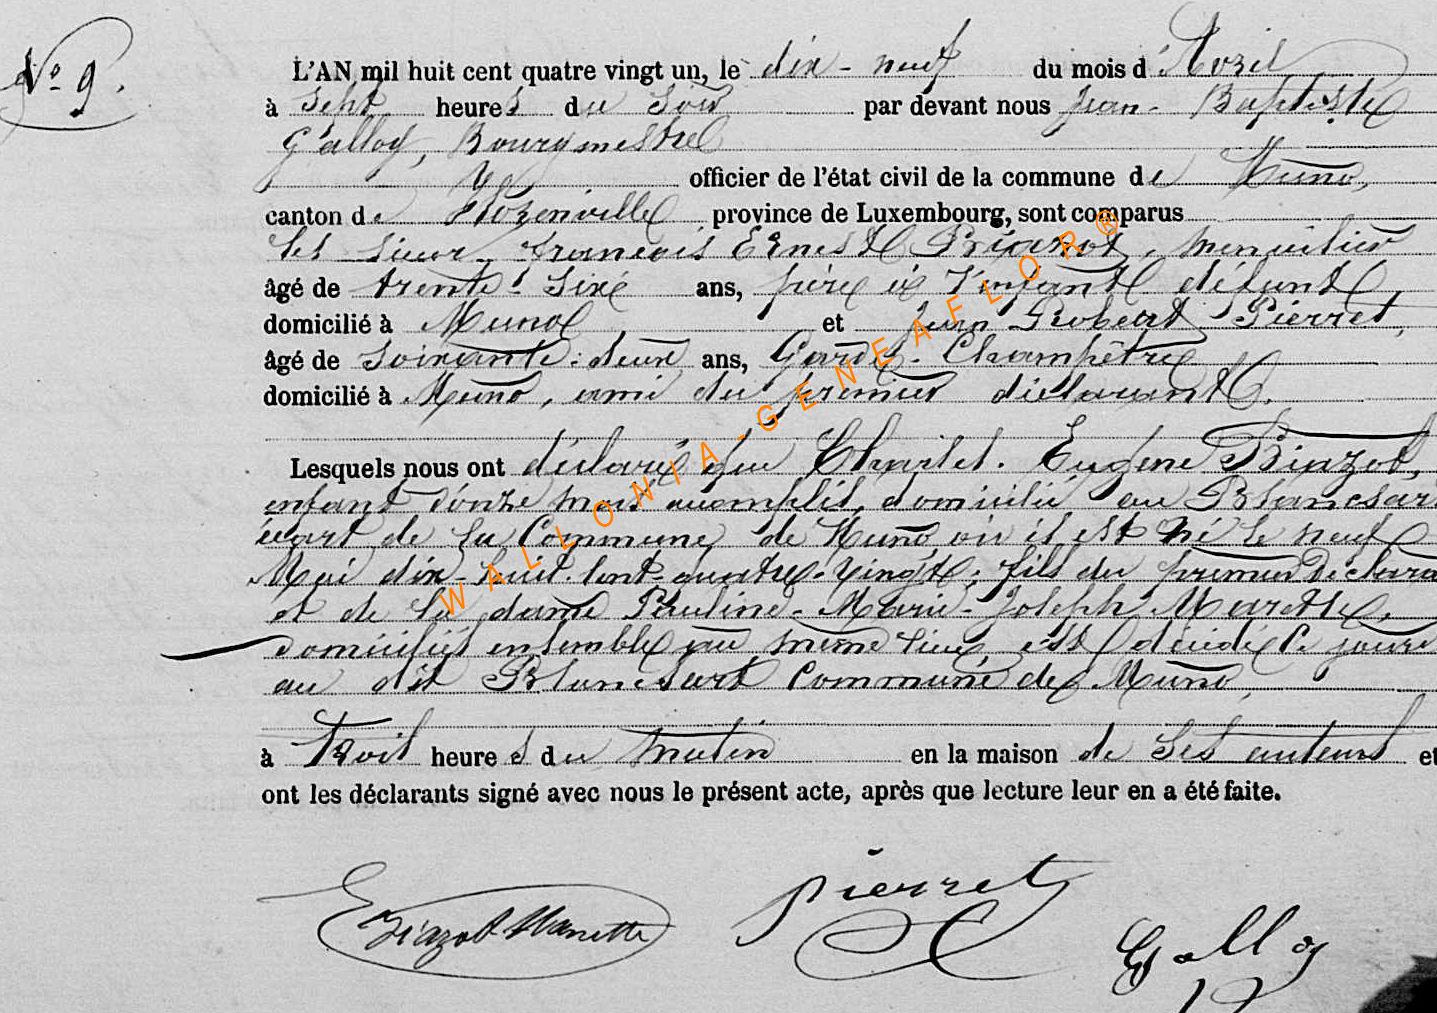 N° 9.
L'AN mil huit cent quatre vingt un, le dix-neuf du mois d'Avril
à sept heures du soir par devant nous Jean-Baptiste
Galloy, Bourgmestre
officier de l'état civil de la commune de Muno,
canton de Florenville, province de Luxembourg, sont comparus
les sieur François Ernest Biazot, menuisier
âgé de trente-six ans, père de l'enfant défunt,
domicilié à Muno, et Jean Robert Pierret,
âgé de soixante-deux ans, Garde-Champêtre
domicilié à Muno, ami du premier déclarant.
Lesquels nous ont déclaré que Charles-Eugène Biazot,
enfant d'onze mois accomplis, domicilié au Blancsar
écart de la Commune de Muno, où il est né le neuf
Mai dix-huit-cent-quatre-vingt, fils du premier Déclara
et de la dame Pauline-Marie-Joseph Marette,
domiciliés ensemble au même lieu, est décédé ce jour
au dit Blancsart Commune de Muno,
à trois heures du matin en la maison de ses auteurs et
ont les déclarants signé avec nous le présent acte, après que lecture leur en a été faite.
E Biazot Marette
Pierret
Galloy
WALLONIA-GENEAFLOR®